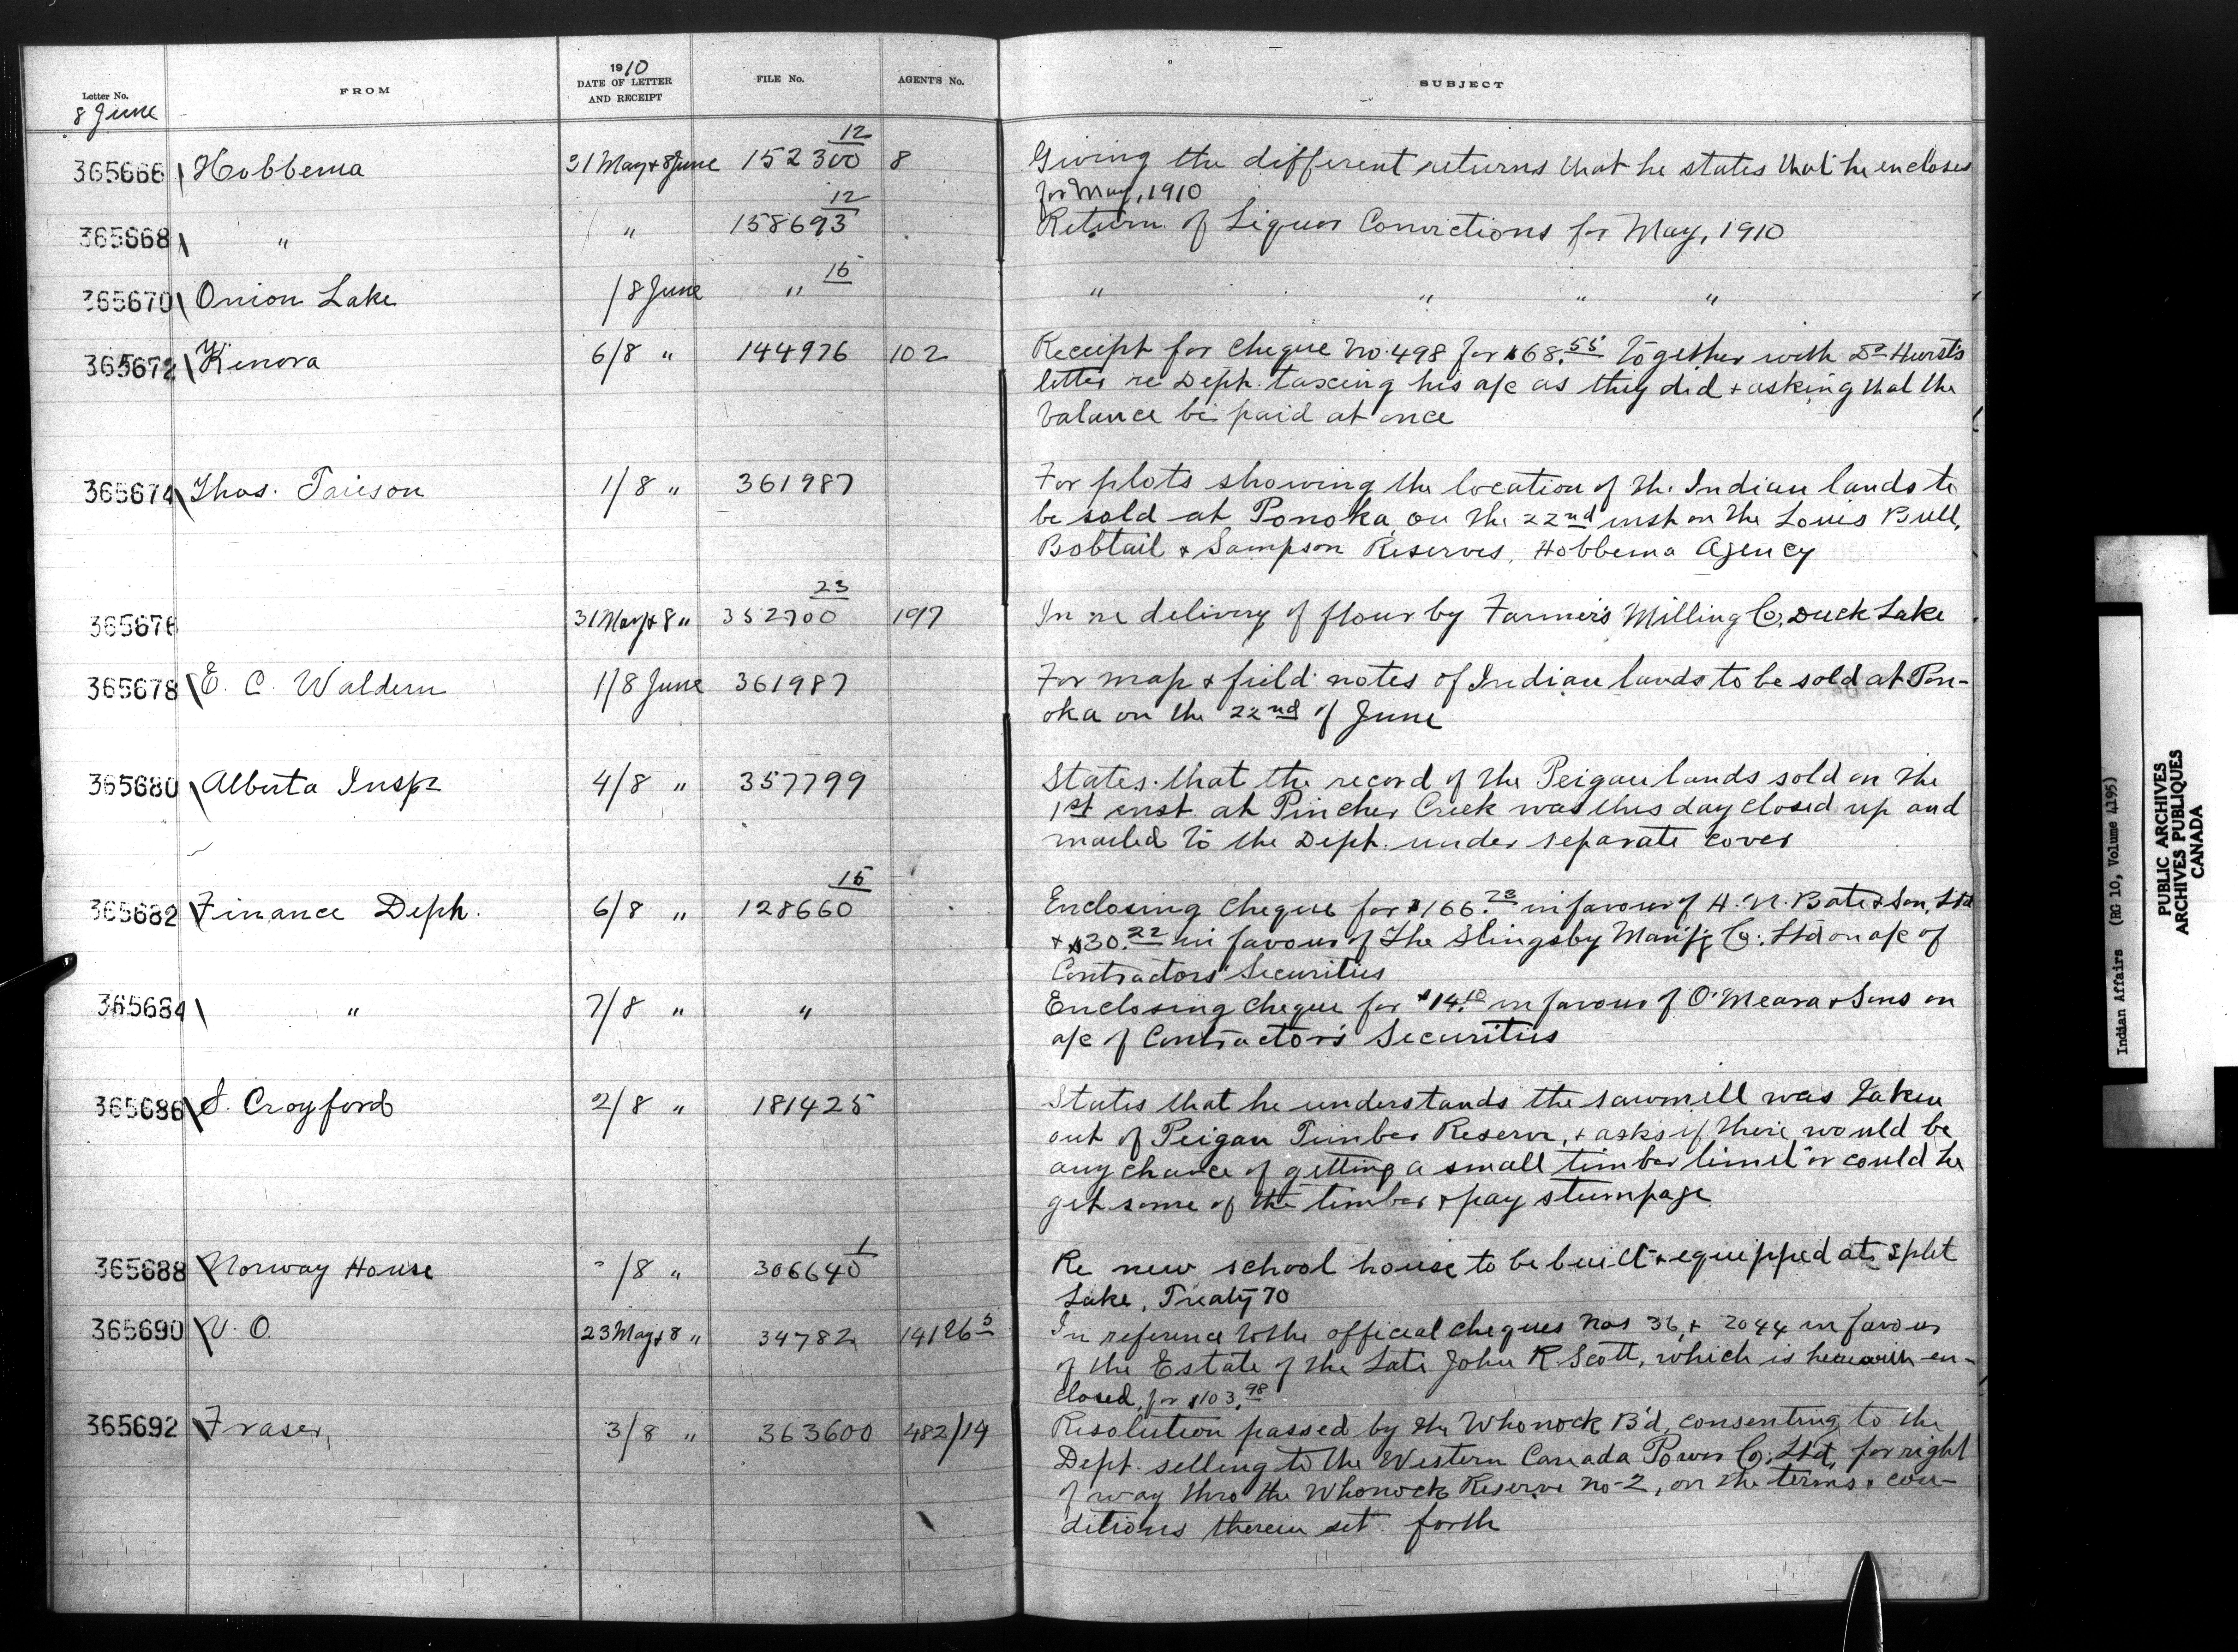 Letter No. FROM 1910 DATE OF LETTER AND RECEIPT FILE No. AGENT'S No. SUBJECT
8 June
365666 Hobbema 31 May & 8 June 152300 12 8 Giving the different returns that he states that he encloses
for May, 1910
365668 " " 158693 12 Return of Liquor Convictions for May, 1910
365670 Onion Lake /8 June " 15 " " " "
365672 Kenora 6/8 " 144976 102 Receipt for cheque No. 498 for $68.55 together with Dr Hurst's
letter re Dept. taxing his a/c as they did & asking that the
balance be paid at once
365674 Thos. 1/8 " 361987 For plots showing the location of the Indian lands to
be sold at Ponoka on the 22nd inst on the Louis Bull,
Bobtail & Sampson Reserves, Hobbema Agency
365676 31 May & 8 " 352700 23 197 In re delivery of flour by Farmer's Milling Co. Duck Lake
365678 E. C. Waldern 1/8 June 361987 For map & field notes of Indian lands to be sold at Pon-
oka on the 22nd of June
365680 Alberta Insp 4/8 " 357799 States that the record of the Peigan lands sold on the
1st inst. at Pincher Creek was this day closed up and
mailed to the Dept. under separate cover
365682 Finance Dept. 6/8 " 128660 15 Enclosing cheque for $166. in favour of H. N. Bate & Son, Ltd
& $30.22 in favour of The Slingsby Man'f'g Co. Ltd on a/c of
Contractors' Securities
365684 " 7/8 " " Enclosing cheque for $14.10 in favour of O'Meara & Sons on
a/c of Contractor's Securities
365686 S. Croyford 2/8 " 181425 States that he understands the sawmill was taken
out of Peigan Timber Reserve, & asks if there would be
any chance of getting a small timber limit or could he
get some of the timber & pay stumpage
365688 Norway House -/8 " 306640 1 Re new school house to be built & equipped at Split
Lake, Treaty
365690 V. O. 23 May & 8 " 34782 14126 5 In reference to the official cheques Nos 36 & 2044 in favour
of the Estate of the Late John R. Scott, which is herewith en-
closed, for $103.98
365692 Fraser, 3/8 " 363600 482/14 Resolution passed by the Whonock B'd, consenting to the
Dept. selling to the Western Canada Power Co. Ltd, for right
of way thro the Whonock Reserve No-2, on the terms & con-
ditions therein set forth
Indian Affairs (RG 10, Volume 4195)
PUBLIC ARCHIVES
ARCHIVES PUBLIQUES
CANADA